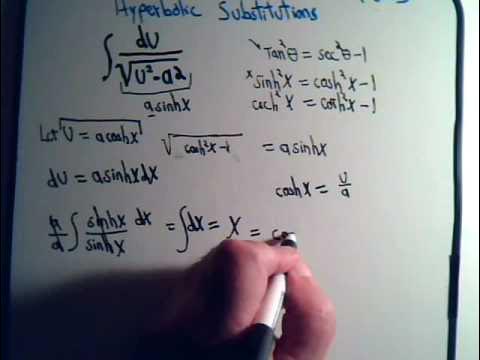 Hyperbolic Substitutions
∫ du / √(U² - a²)
a sinh x
Tan²θ = sec²θ - 1
* sinh²x = cosh²x - 1
csch²x = coth²x - 1
Let U = a cosh x
√(cosh²x - 1) = a sinh x
du = a sinh x dx
cosh x = U/a
a/a ∫ sinh x / sinh x dx = ∫ dx = x = co